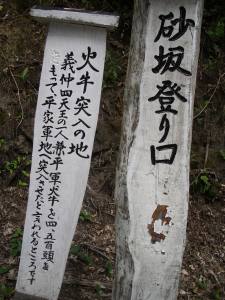 砂坂登り口
火牛突入の地
義仲四天王の一人兼平軍火牛を四、五百頭を
もって平家軍地へ突入させたと言われるところです